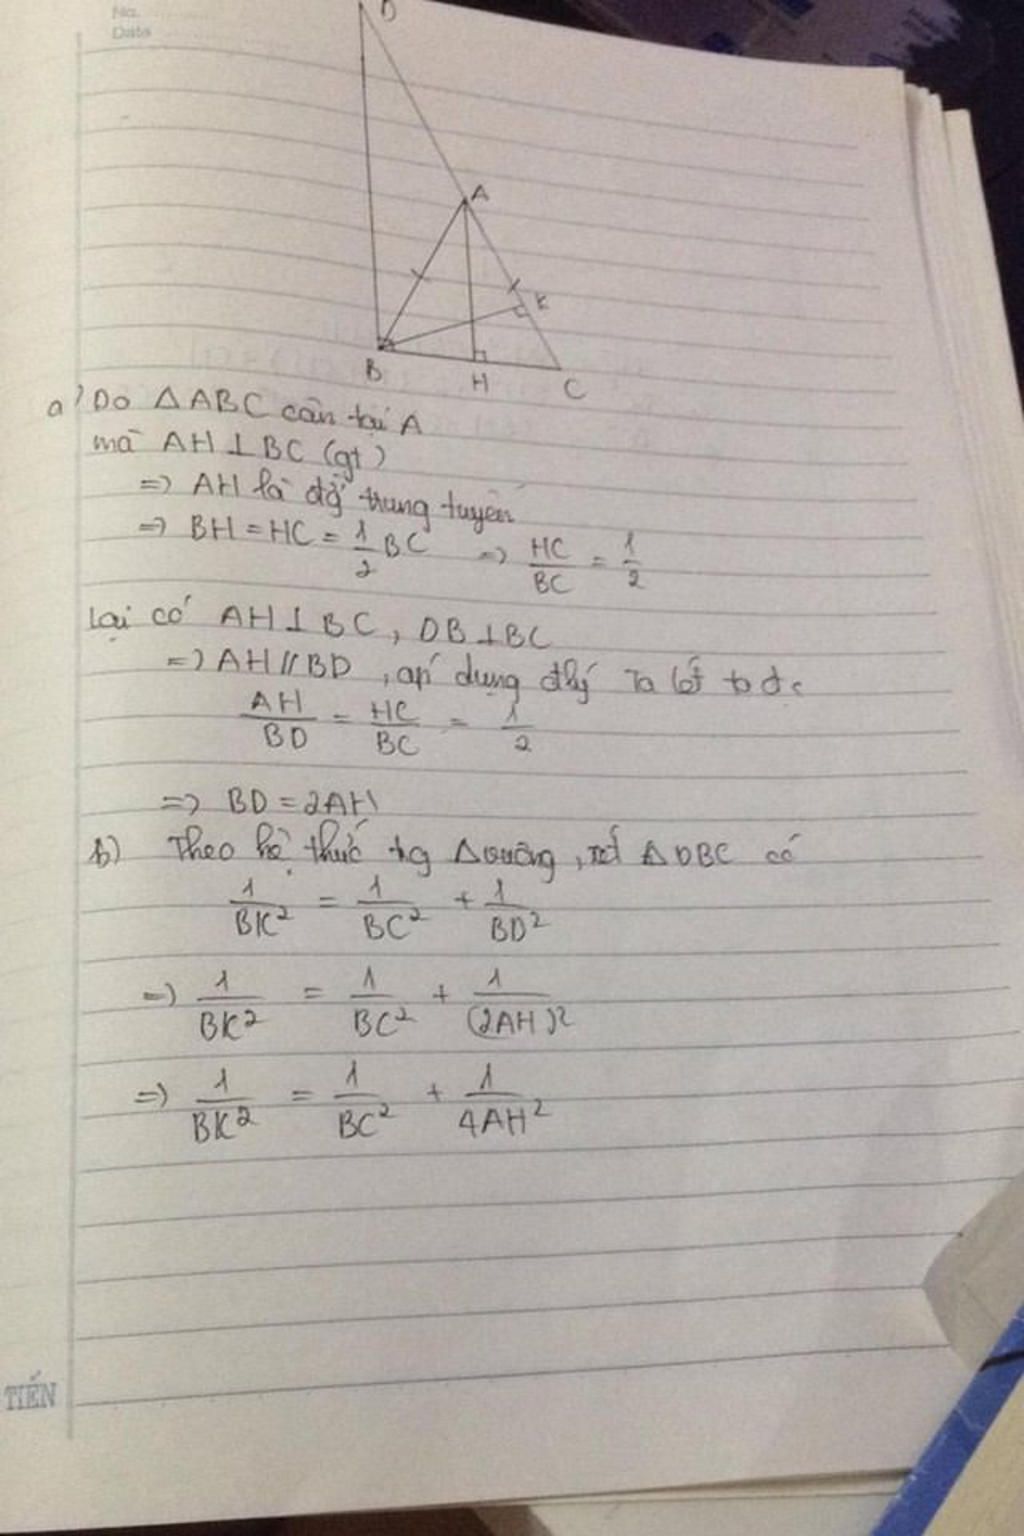 No.
Date
D
A
K
B
H
C
a) Do △ABC cân tại A
mà AH ⊥ BC (gt)
=> AH là đg̀ trung tuyến
=> BH = HC = 1/2 BC => HC/BC = 1/2
Lại có AH ⊥ BC, DB ⊥ BC
=> AH // BD, áp dụng đlý Ta lét ta đc
AH/BD = HC/BC = 1/2
=> BD = 2AH
b) Theo hệ thức tg △vuông, xét △DBC có
1/BK² = 1/BC² + 1/BD²
=> 1/BK² = 1/BC² + 1/(2AH)²
=> 1/BK² = 1/BC² + 1/4AH²
TIẾN